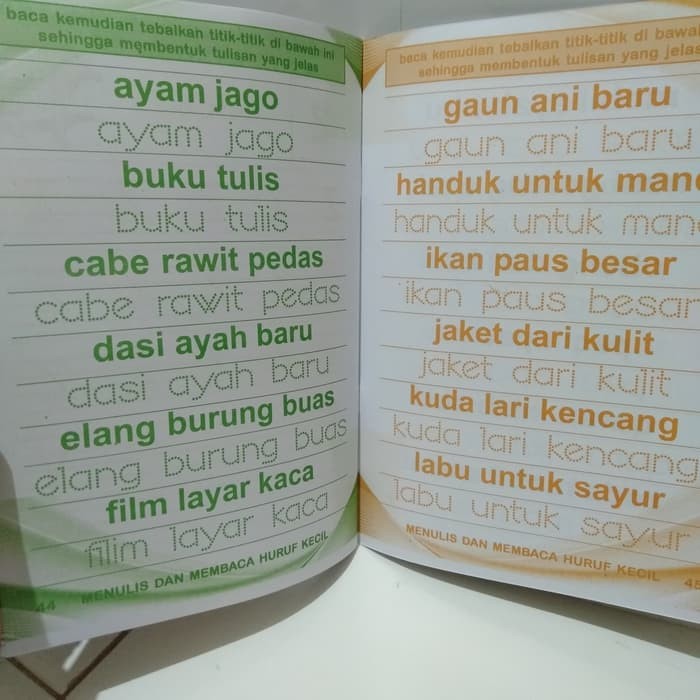 baca kemudian tebalkan titik-titik di bawah ini
sehingga membentuk tulisan yang jelas
ayam jago
ayam jago
buku tulis
buku tulis
cabe rawit pedas
cabe rawit pedas
dasi ayah baru
dasi ayah baru
elang burung buas
elang burung buas
film layar kaca
film layar kaca
MENULIS DAN MEMBACA HURUF KECIL
44
baca kemudian tebalkan titik-titik di
sehingga membentuk tulisan yang jelas
gaun ani baru
gaun ani baru
handuk untuk
handuk untuk
ikan paus besar
ikan paus besar
jaket dari kulit
jaket dari kulit
kuda lari kencang
kuda lari kencang
labu untuk sayur
labu untuk sayur
MENULIS DAN MEMBACA HURUF KECIL